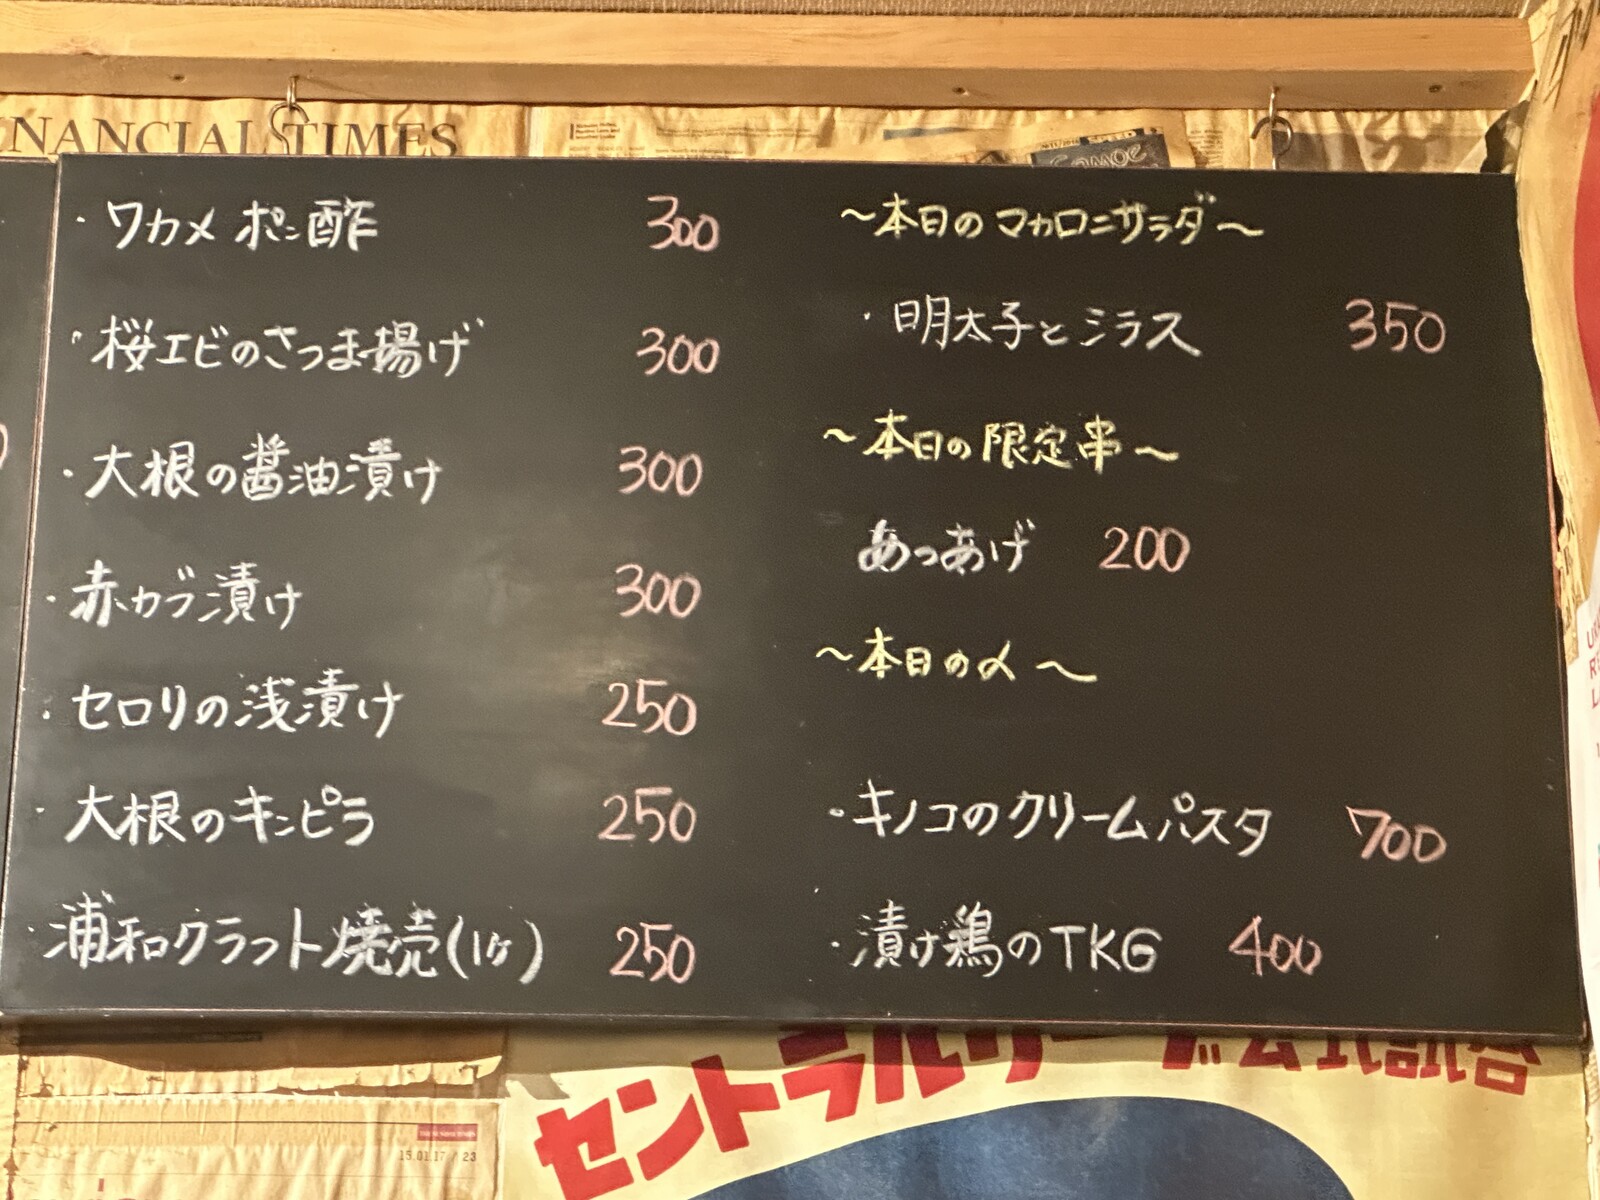 FINANCIAL TIMES
・ワカメポン酢 300
・桜エビのさつま揚げ 300
・大根の醤油漬け 300
・赤カブ漬け 300
・セロリの浅漬け 250
・大根のキンピラ 250
・浦和クラフト焼売(1ヶ) 250
～本日のマカロニサラダ～
・明太子とシラス 350
～本日の限定串～
あつあげ 200
～本日の〆～
・キノコのクリームパスタ 700
・漬け鶏のTKG 400
セントラルリーグ公式試合
15.01.17 / 23